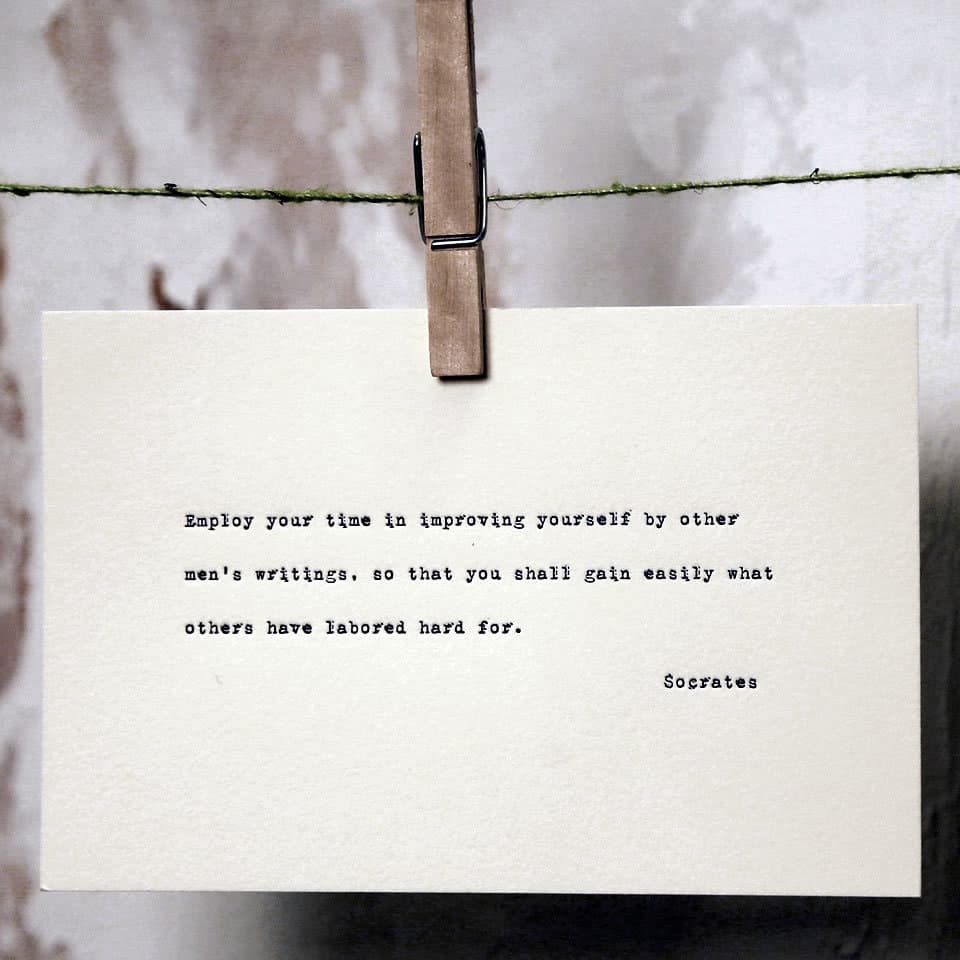 Employ your time in improving yourself by other
men's writings, so that you shall gain easily what
others have labored hard for.
Socrates